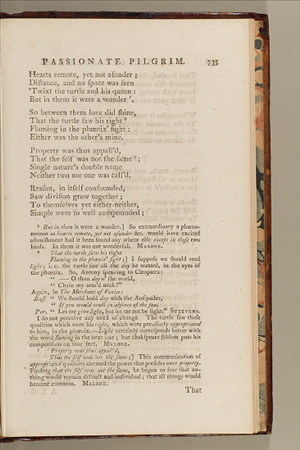 PASSIONATE PILGRIM. 735
Hearts remote, yet not asunder;
Distance, and no space was seen
'Twixt the turtle and his queen:
But in them it were a wonder⁷.
So between them love did shine,
That the turtle saw his right⁸
Flaming in the phœnix' sight:
Either was the other's mine.
Property was thus appall'd,
That the self was not the same⁹;
Single nature's double name
Neither two nor one was call'd.
Reason, in itself confounded,
Saw division grow together;
To themselves yet either-neither,
Simple were so well compounded;
⁷ But in them it were a wonder.] So extraordinary a phæno-
menon as hearts remote, yet not asunder &c. would have excited
astonishment had it been found any where else except in these two
birds. In them it was not wonderful. MALONE.
⁸ That the turtle saw his right
Flaming in the phœnix' sight;] I suppose we should read
light; i. e. the turtle saw all the day he wanted, in the eyes of
the phœnix. So, Antony speaking to Cleopatra:
" — O thou day o' the world,
" Chain my arm'd neck!"
Again, in The Merchant of Venice:
Bass. " We should hold day with the Antipodes,
" If you would walk in absence of the sun.
Por. " Let me give light, but let me not be light." STEEVENS.
I do not perceive any need of change. The turtle saw those
qualities which were his right, which were peculiarly appropriated
to him, in the phœnix.—Light certainly corresponds better with
the word flaming in the next line; but Shakspeare seldom puts his
comparisons on four feet. MALONE.
⁹ Property was thus appall'd,
That the self was not the same;] This communication of
appropriated qualities alarmed the power that presides over property.
Finding that the self was not the same, he began to fear that no-
thing would remain distinct and individual; that all things would
become common. MALONE.
That